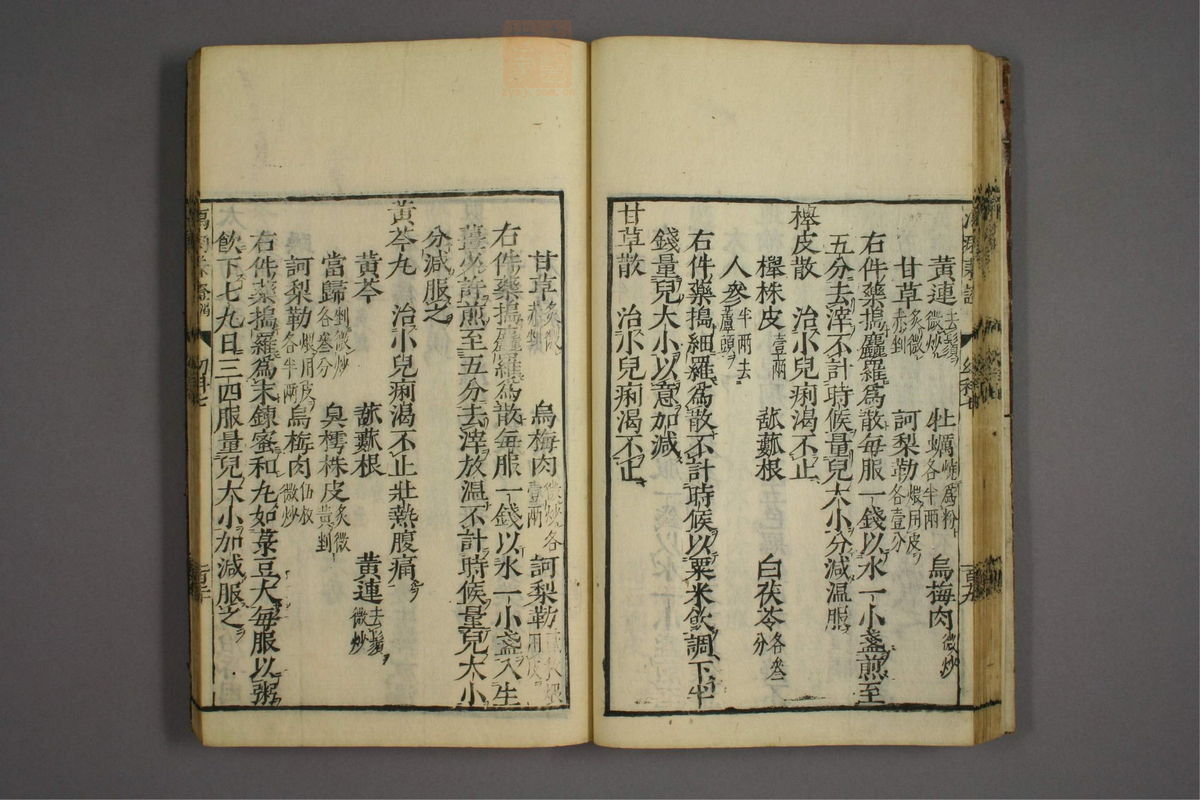 黄連去鬚微炒 牡蠣燒爲粉各半兩 烏梅肉微炒
甘草炙微赤剉 訶梨勒煨用皮各壹分
右件藥搗麤羅爲散每服一錢以水一小盞煎至
五分去滓不計時候量兒大小分減温服
櫸皮散 治小兒痢渴不止
櫸株皮壹兩 菰䕡根 白茯苓各叁分
人參半兩去蘆頭
右件藥搗細羅爲散不計時候以粟米飲調下半
錢量兒大小以意加減
甘草散 治小兒痢渴不止
甘草炙微赤剉 烏梅肉微炒各壹兩 訶梨勒煨用皮
右件藥搗麤羅爲散每服一錢以水一小盞入生
薑少許煎至五分去滓放温不計時候量兒大小
分減服之
黄芩丸 治小兒痢渴不止壯熱腹痛
黄芩 菰䕡根 黄連去鬚微炒
當歸剉微炒各叁分 臭樗株皮炙微黄剉
訶梨勒煨用皮各半兩 烏梅肉伍枚微炒
右件藥搗羅爲末錬蜜和丸如菉豆大每服以粥
飲下七丸日三四服量兒大小加減服之